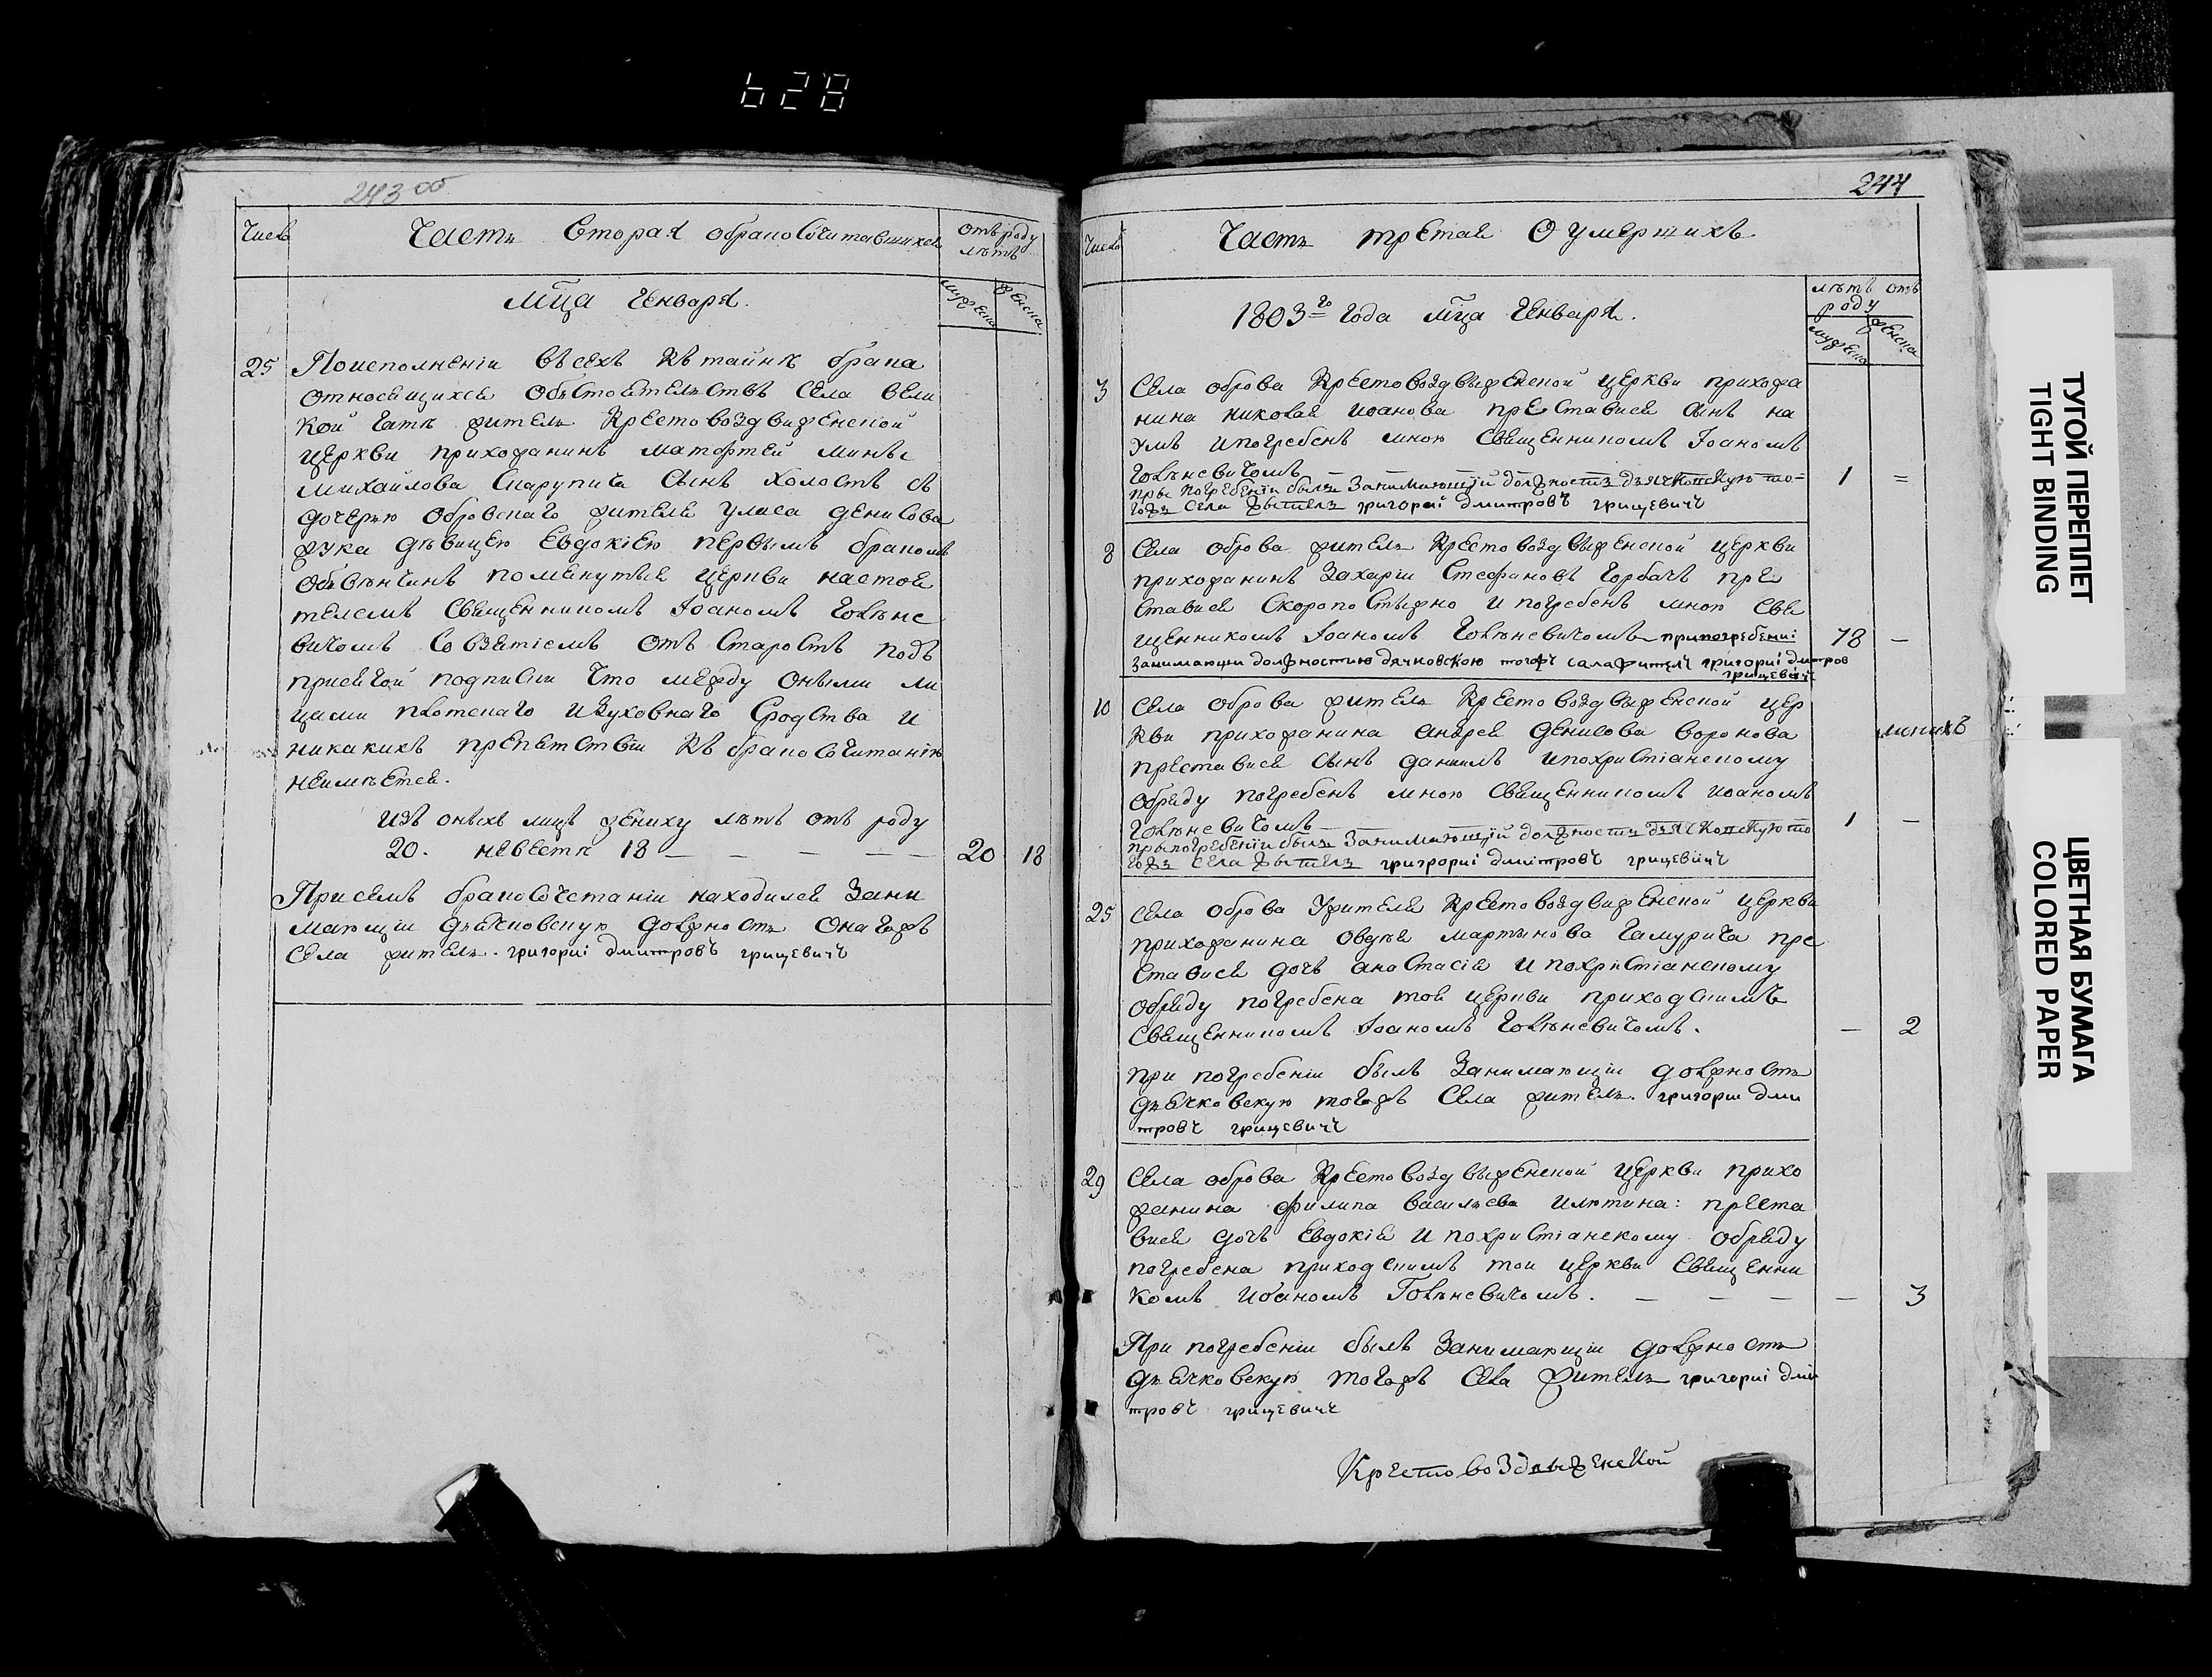 628
243 об
Число
Часть Вторая о бракосочитавшихся
отъ роду
лѣтъ
мужеска
женска
Мца Генваря.
25
Поисполненіи въсехъ къ тайнѣ брака
относящихся обьстоятельствъ села вели
кой Гати житель Крестовоздвиженской
церкви прихожанинъ Матфтей
Михайлова сынъ холостъ съ
дочерью обровскаго жителя Уласа Денисова
Жука дѣвицею Евдокіею первымъ бракомъ
обвѣнчинъ помянутыя церкви настоя
телемъ священникомъ Іоаномъ Голѣне
вичомъ со взятіемъ отъ старостъ подъ
присягой подписки что между оными ли
цами плотскаго и духовнаго сродства и
никакихъ препятствіи къ бракосочитанію
неимѣется.
Изъ оныхъ лицъ жениху лѣтъ отъ роду
20. невестѣ 18 — — — — —
20
18
Присемъ бракосочетаніи находился зани
мающіи дьячковскую должность онагожъ
села житель. григориі дмитровъ грицевичъ
244
Число
Часть третая О умершихъ
лѣтъ отъ
роду
мужеска
женска
1803 го года мца Генваря.
3
Села оброва Крестовоздвыженской церкви прихожа
нина николая иоанова преставися сынъ на
умъ ипогребенъ мною священникомъ Іоаномъ
Голѣневичомъ — — — — —
1
=
пры погребеніи былъ занимающій должность дьячконскую то-
гожъ села жытель григориі дмитровъ грицевичъ
8
Села оброва житель Крестовоздвыженской церкви
прихожанинъ Захаріи Стефановъ Горбачъ пре
ставися скоропостыжно и погребенъ мною свя
щенникомъ Іоаномъ Голѣневичомъ припогребениі
78
—
занимающи должностию дячковскою тогожъ сала жителъ григориі дмитров
грицевичъ
10
Села оброва житель Крестовоздвыженской цер
кви прихожанина андрея денисова воронова
преставися сынъ даниилъ ипохристіанскому
обряду погребенъ мною священникомъ иоаномъ
Голѣневичомъ — — — — —
1
—
прыпогребеніи былъ занимающій должность дьячконскую то
гожъ села жытель григрориі дмітровъ грицевічъ
25
Села оброва жителя Крестовоздвиженской церкви
прихожанина овдѣя мартынова Гамурича пре
ставися дочъ анастасія и похристіанскому
обряду погребена той церкви приходскимъ
священникомъ Іоаномъ Голѣневичомъ.
—
2
при погребеніи былъ занимающіи должность
дьячковскую тогожъ села житель. григориі дми
тровъ грицевичъ
29
Села оброва Крестовоздвыженской церкви прихо
жанина филипа васильева илютина: преста
вися дочъ Евдокія и похристіанскому обряду
погребена приходскимъ тои церкви священни
комъ иоаномъ Голѣневичомъ. — — —
—
3
При погребеніи былъ занимающіи должность
дьячковскую тогожъ села житель григориі дми
тровъ грицевичъ
Крестовоздвыженской
ТУГОЙ ПЕРЕПЛЕТ
TIGHT BINDING
ЦВЕТНАЯ БУМАГА
COLORED PAPER